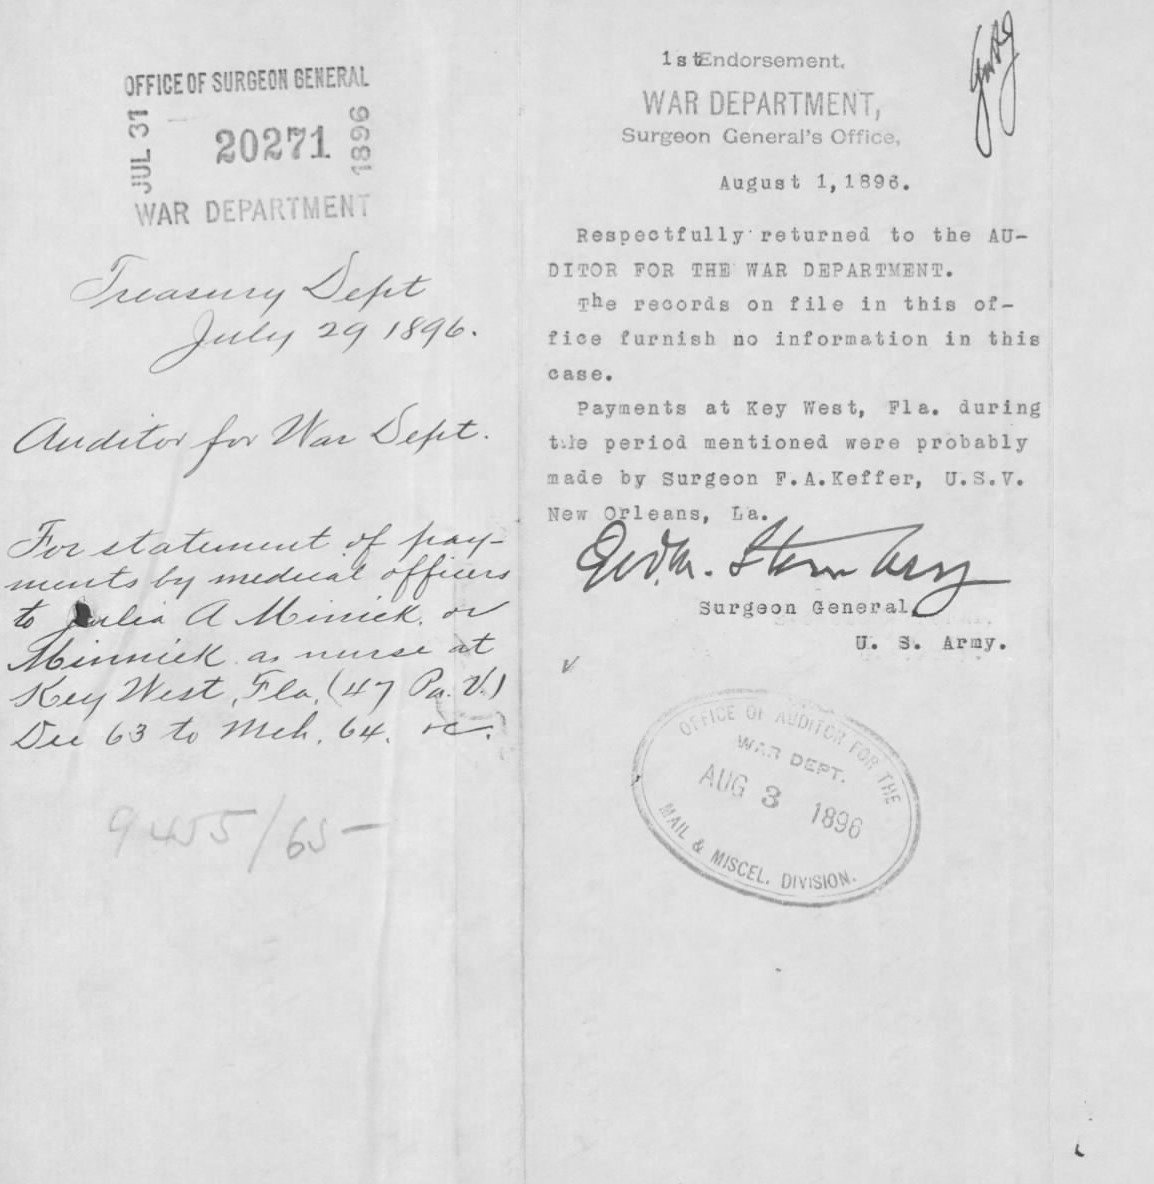 OFFICE OF SURGEON GENERAL
JUL 31
20271
1896
WAR DEPARTMENT
Treasury Dept
July 29 1896.
Auditor for War Dept.
For statement of pay-
ments by medical officers
to Julia A Minick, or
Minnick as nurse at
Key West, Fla, (47 Pa. V.)
Dec 63 to Mch. 64. &c.
9455/65-
1st Endorsement.
WAR DEPARTMENT,
Surgeon General's Office,
August 1, 1896.
Respectfully returned to the AU-
DITOR FOR THE WAR DEPARTMENT.
The records on file in this of-
fice furnish no information in this
case.
Payments at Key West, Fla. during
the period mentioned were probably
made by Surgeon F.A.Keffer, U.S.V.
New Orleans, La.
Geo. M. Sternberg
Surgeon General,
U. S. Army.
OFFICE OF AUDITOR FOR THE
WAR DEPT.
AUG 3 1896
MAIL & MISCEL. DIVISION.